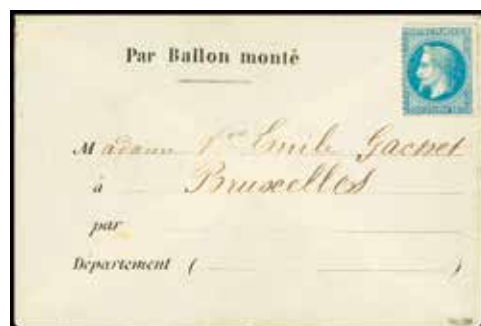 Par Ballon monté
Madame Vve Emile Gachet
à Bruxelles
par
Département ( )